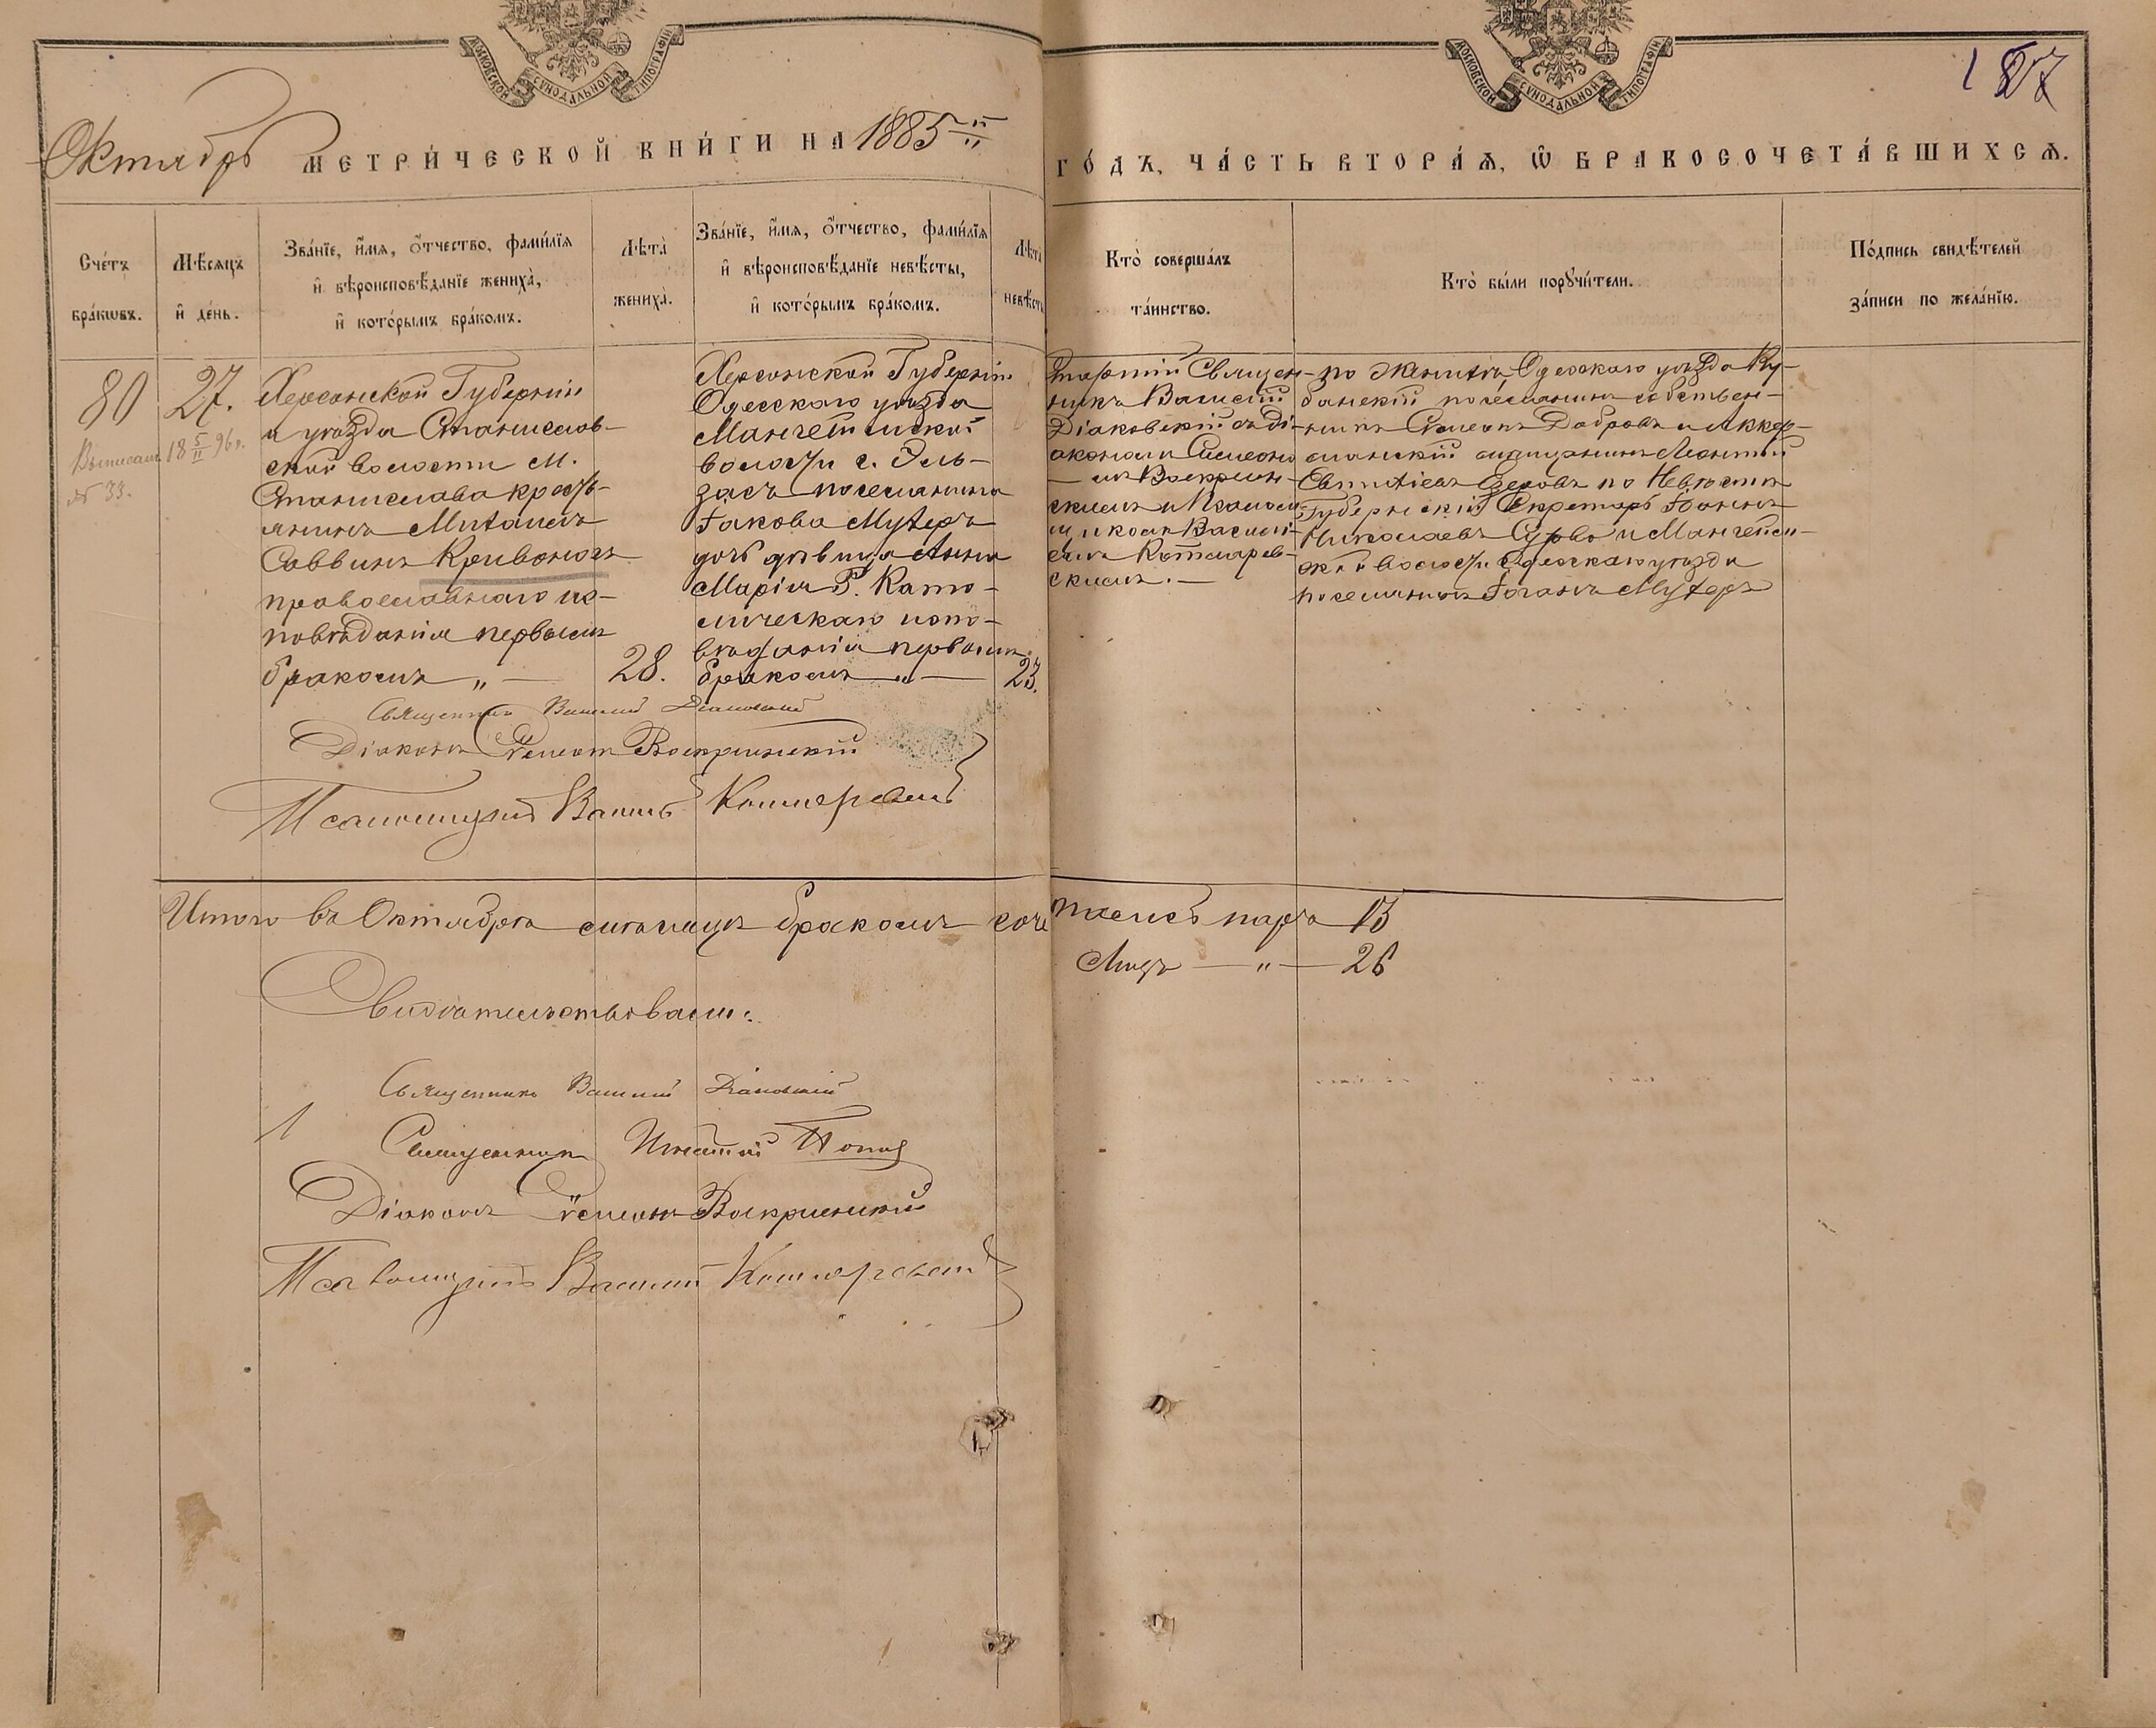 МОСКОВСКОЙ СѴНОДАЛЬНОЙ ТИПОГРАФІИ
МОСКОВСКОЙ СѴНОДАЛЬНОЙ ТИПОГРАФІИ
Октябрь МЕТРИ́ЧЕСКОЙ КНИ́ГИ НА 1885й ГО́ДЪ, ЧА́СТЬ ВТОРА́Ѧ, Ѽ БРАКОСОЧЕТА́ВШИХСѦ.
Сче́тъ бра́кѡвъ.
Мѣ́сяцъ и҆ де́нь.
Зва́нїе, и҆́мя, ѻ҆́тчество, фами́лїя и҆ вѣроисповѣ́данїе жениха̀, и҆ кото́рымъ бра́комъ.
Лѣта̀ жениха̀.
Зва́нїе, и҆́мя, ѻ҆́тчество, фами́лїя и҆ вѣроисповѣ́данїе невѣ́сты, и҆ кото́рымъ бра́комъ.
Лѣта̀ невѣ́сты
Кто̀ соверша́лъ та́инство.
Кто̀ бы́ли порꙋчи́тели.
По́дпись свидѣ́телей за́писи по жела́нїю.
80
27.
Выписанъ 18 5/II 96 г.
№ 33.
Херсонской Губерніи
и уѣзда Станислав-
ской волости М.
Станислава кресть-
янинъ Михаилъ
Саввинъ Кривоносъ
православнаго ис-
повѣданія первымъ
бракомъ „ —
28.
Херсонской Губерніи
Одесскаго уѣзда
Мангеймской
волости с. Эль-
засъ поселянина
Іакова Мутеръ
дочь дѣвица Анна
Марія Р. Като-
лическаго испо-
вѣданія первымъ
бракомъ „ —
23.
Священ-
никъ Василій
Діаковскій съ Ді-
акономъ Симеоно
мъ Воскресен-
скимъ и Псалом-
щикомъ Василі-
емъ Котляров-
скимъ. —
по Женихѣ Одесскаго уѣзда Ку-
банскій поселянинъ собствен-
никъ Симеонъ Добровъ и Аккер-
манскій мѣщанинъ Леонтій
Евтихіевъ по Невѣстѣ
Губернскій Секретарь Іоаннъ
Николаевъ и Мангейм-
ской волости Одесскаго уѣзда
поселянинъ Іоганъ Мутеръ
Священникъ Василій Діаковскій
Діаконъ Симеонъ Воскресенскій
Псаломщикъ Васил Котляревскій
Итого въ Октябрѣ мѣсяцѣ бракомъ сочеталисъ паръ 13
Лицъ — „ — 26
Свидѣтельствовали:
Священникъ Василій Діаковскій
Священникъ Игнатій
Діаконъ Симеонъ Воскресенскій
Псаломщикъ Василій Котляревскій